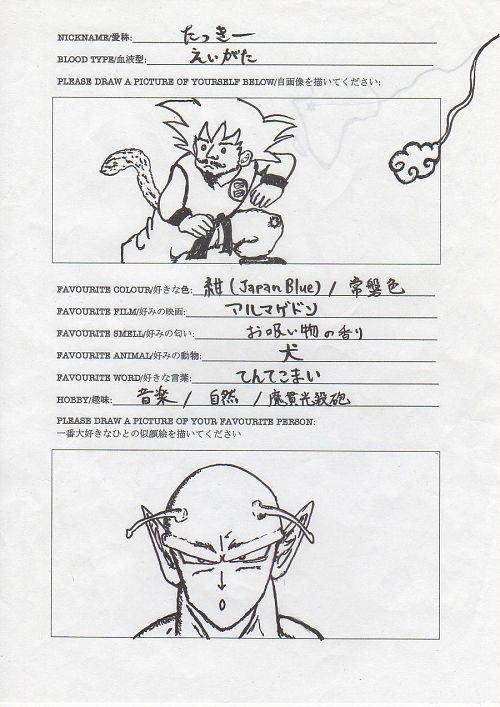 NICKNAME/愛称: たっきー
BLOOD TYPE/血液型: えいがた
PLEASE DRAW A PICTURE OF YOURSELF BELOW/自画像を描いてください:
FAVOURITE COLOUR/好きな色: 紺 (Japan Blue) / 常磐色
FAVOURITE FILM/好みの映画: アルマゲドン
FAVOURITE SMELL/好みの匂い: お吸い物の香り
FAVOURITE ANIMAL/好みの動物: 犬
FAVOURITE WORD/好きな言葉: てんてこまい
HOBBY/趣味: 音楽 / 自然 / 魔貫光殺砲
PLEASE DRAW A PICTURE OF YOUR FAVOURITE PERSON:
一番大好きなひとの似顔絵を描いてください